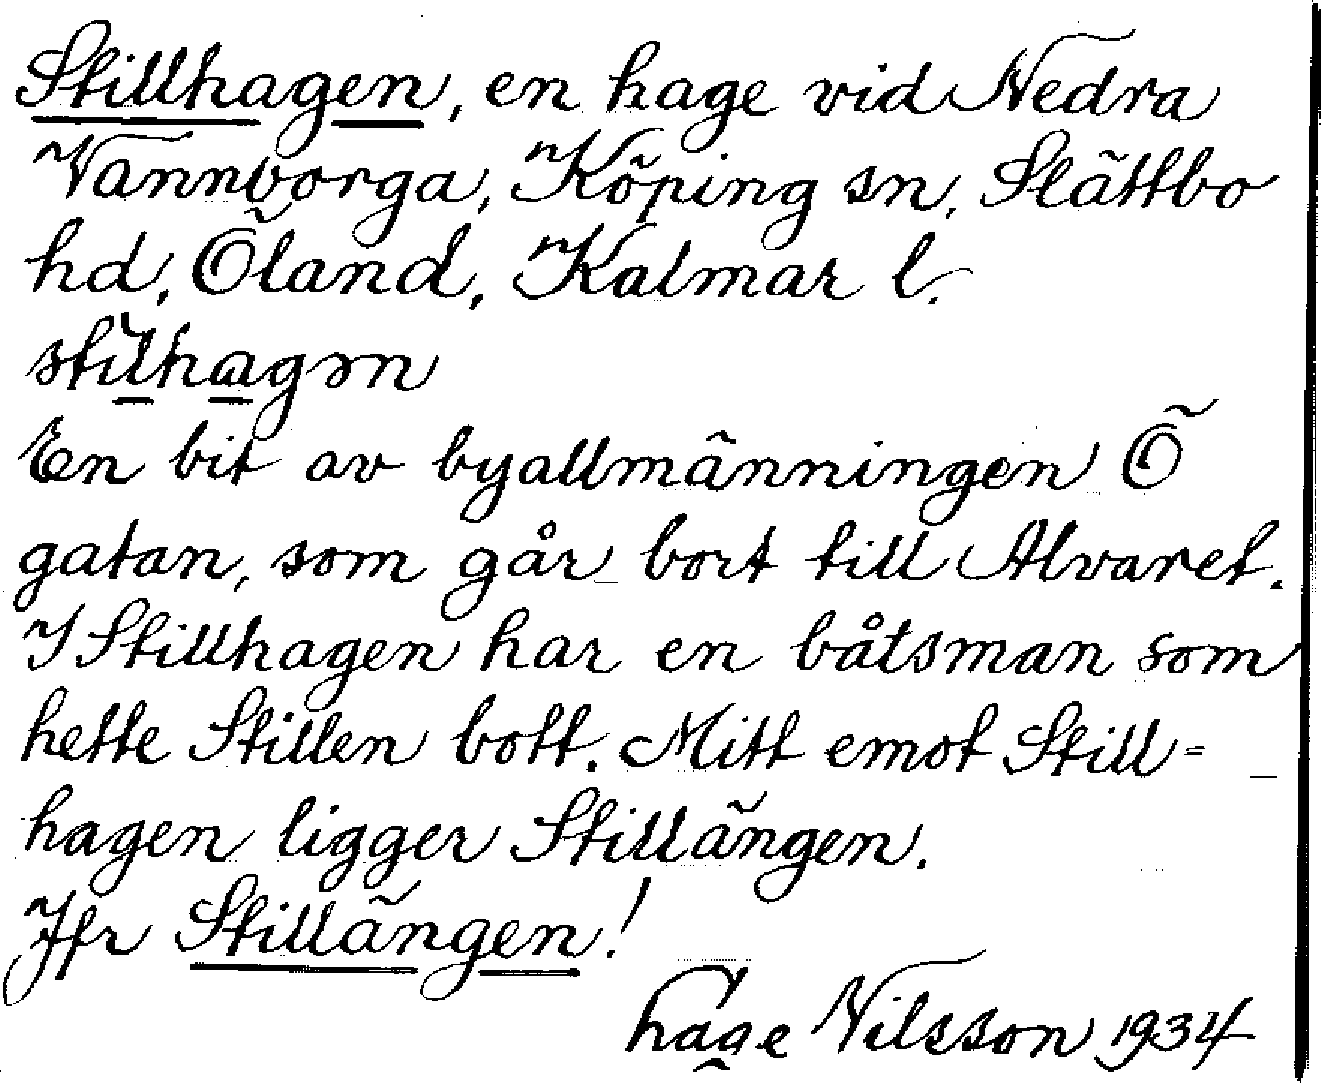 Stillhagen, en hage vid Nedra
Vannborga, Köping sn, Slättbo
hd, Öland, Kalmar l.
stilhagən
En bit av byallmänningen Ö
gatan, som går bort till Alvaret.
I Stillhagen har en båtsman som
hette Stillen bott. Mitt emot Still-
hagen ligger Stillängen.
Jfr Stillängen!
Nilsson 1934